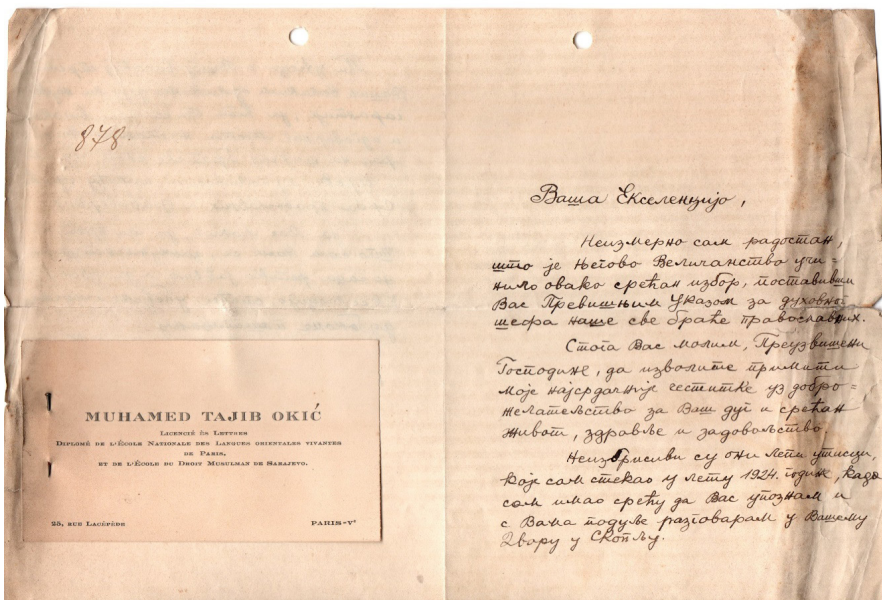 878.
MUHAMED TAJIB OKIĆ
LICENCIÉ ÈS LETTRES
DIPLOMÉ DE L'ÉCOLE NATIONALE DES LANGUES ORIENTALES VIVANTES
DE PARIS,
ET DE L'ÉCOLE DU DROIT MUSULMAN DE SARAJEVO.
25, RUE LACÉPÈDE PARIS-Vᵉ
Ваша Екселенцијо,
Неизмерно сам радостан,
што је Његово Величанство учи-
нило овако срећан избор, поставивши
Вас Превишњим Указом за духовног
шефа наше све браће православних.
Стога Вас молим, Преузвишени
Господине, да изволите примити
моје најсрдачније честитке уз добро-
желатељство за Ваш дуг и срећан
живот, здравље и задовољство.
Неизбрисиви су они лепи утисци,
које сам стекао у лету 1924. године, када
сам имао срећу да Вас упознам и
с Вама подуље разговарам у Вашему
Двору у Скопљу.